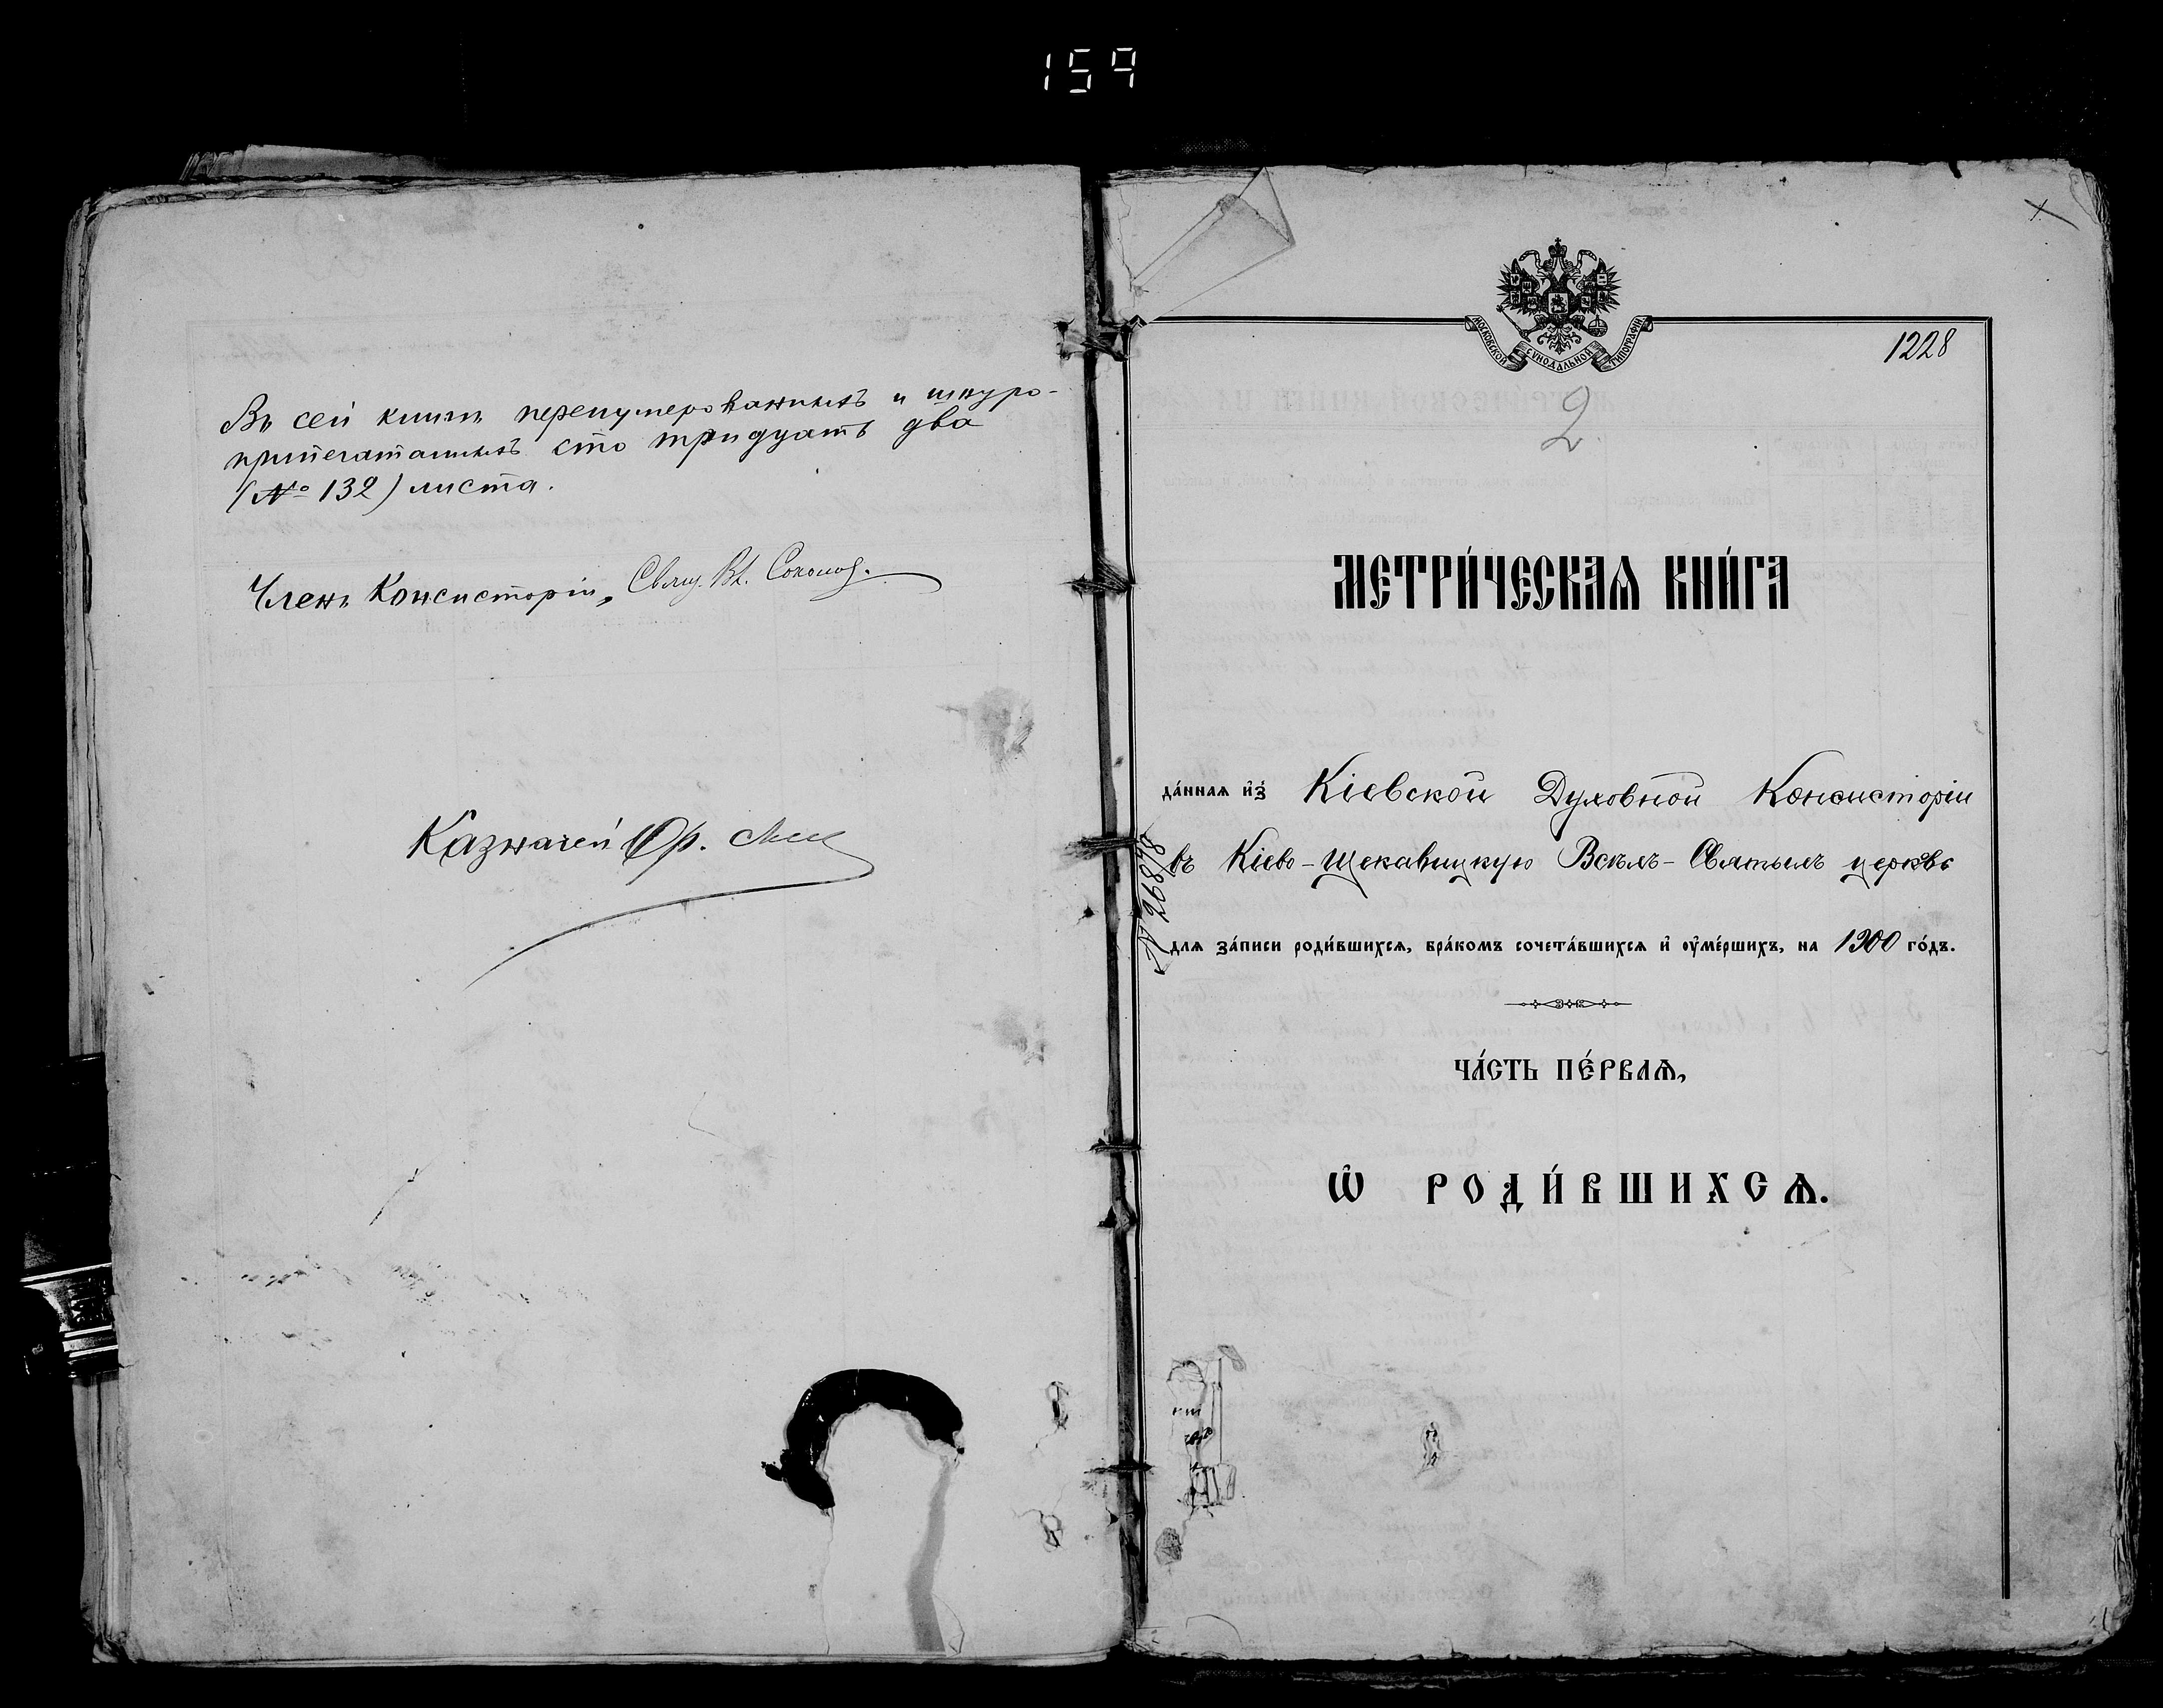 159
Въ сей книгѣ перенумерованныхъ и шнуро-
припечатанныхъ сто тридцать два
(№ 132) листа.
Членъ Консисторіи, Свящ. Вл. Соколов.
Казначей
МОСКОВСКОЙ СѴНОДАЛЬНОЙ ТИПОГРАФІИ
1228
2.
МЕТРИ́ЧЕСКАѦ КНИ́ГА
да́нная и҆з̾ Кіевской Духовной Консисторіи
въ Кіево-Щекавицкую Всѣхъ-Святыхъ церковь
№ 26878
для за́писи роди́вшихся, бра́комъ сочета́вшихся и҆ ᲂу҆ме́ршихъ, на 1900 го́дъ.
ЧА́СТЬ ПЕ́РВАѦ,
Ѽ РОДИ́ВШИХСѦ.